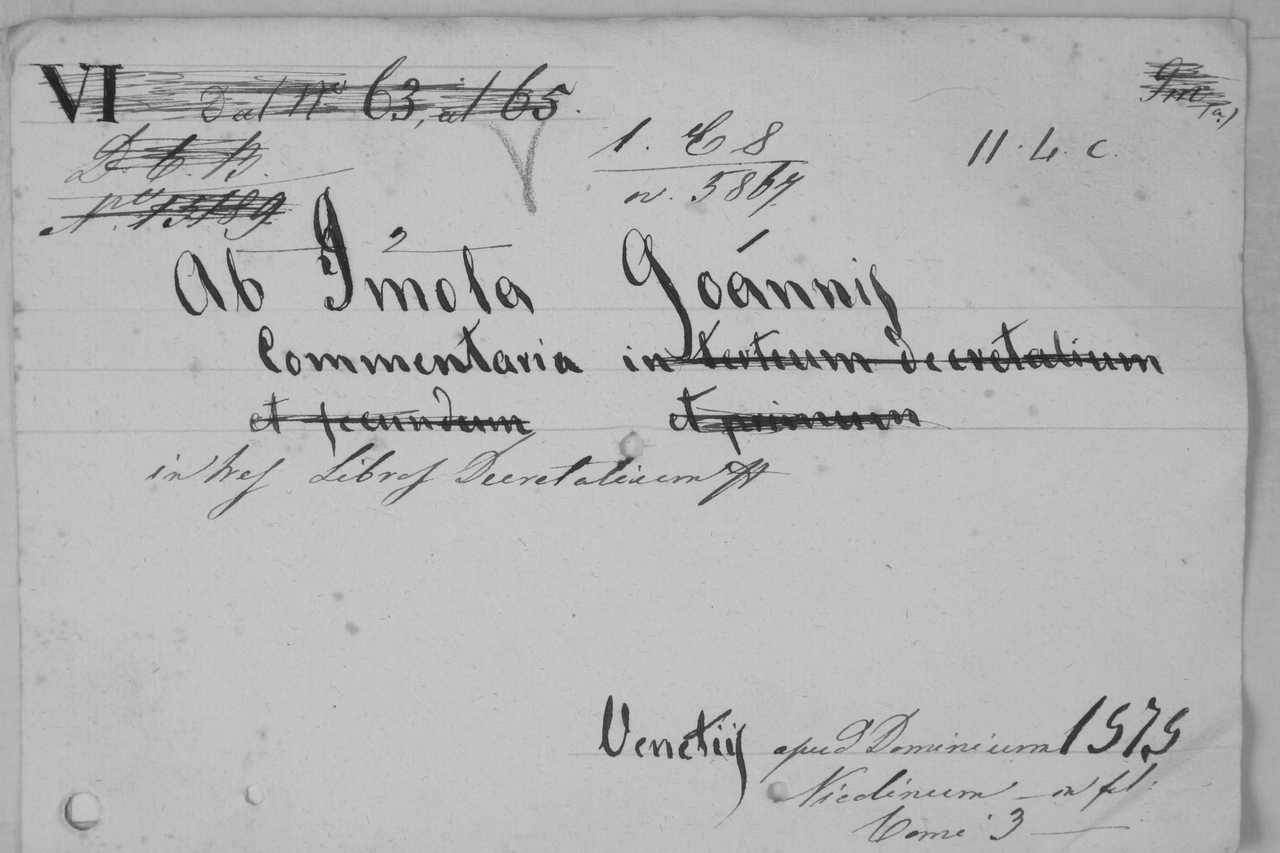 VI dal Nº 63, al 65.
Im (a)
D. C. B.
1. C 8
11. L. c.
Nro 13189
n. 5867
Ab Imola Joánnis
Commentaria in tertium decretalium
et secundum et primum
in tres Libros Decretalium
Venetiis apud Dominicum 1575
Nicolinum in fol:
Tome 3